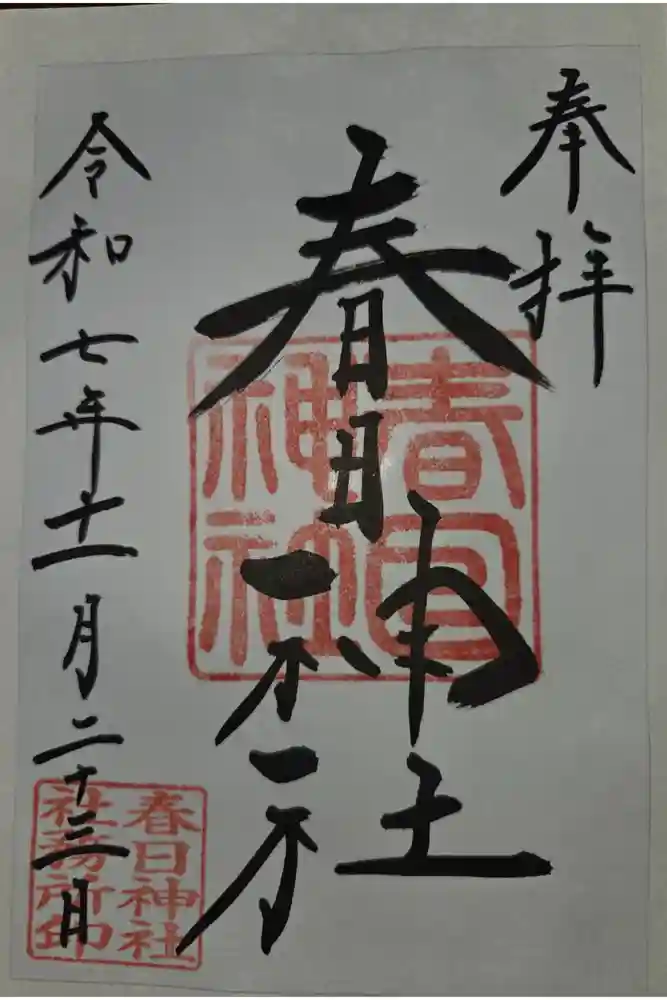 奉拝
春日神社
令和七年十一月二十三日
春日神社
春日神社
社務所印